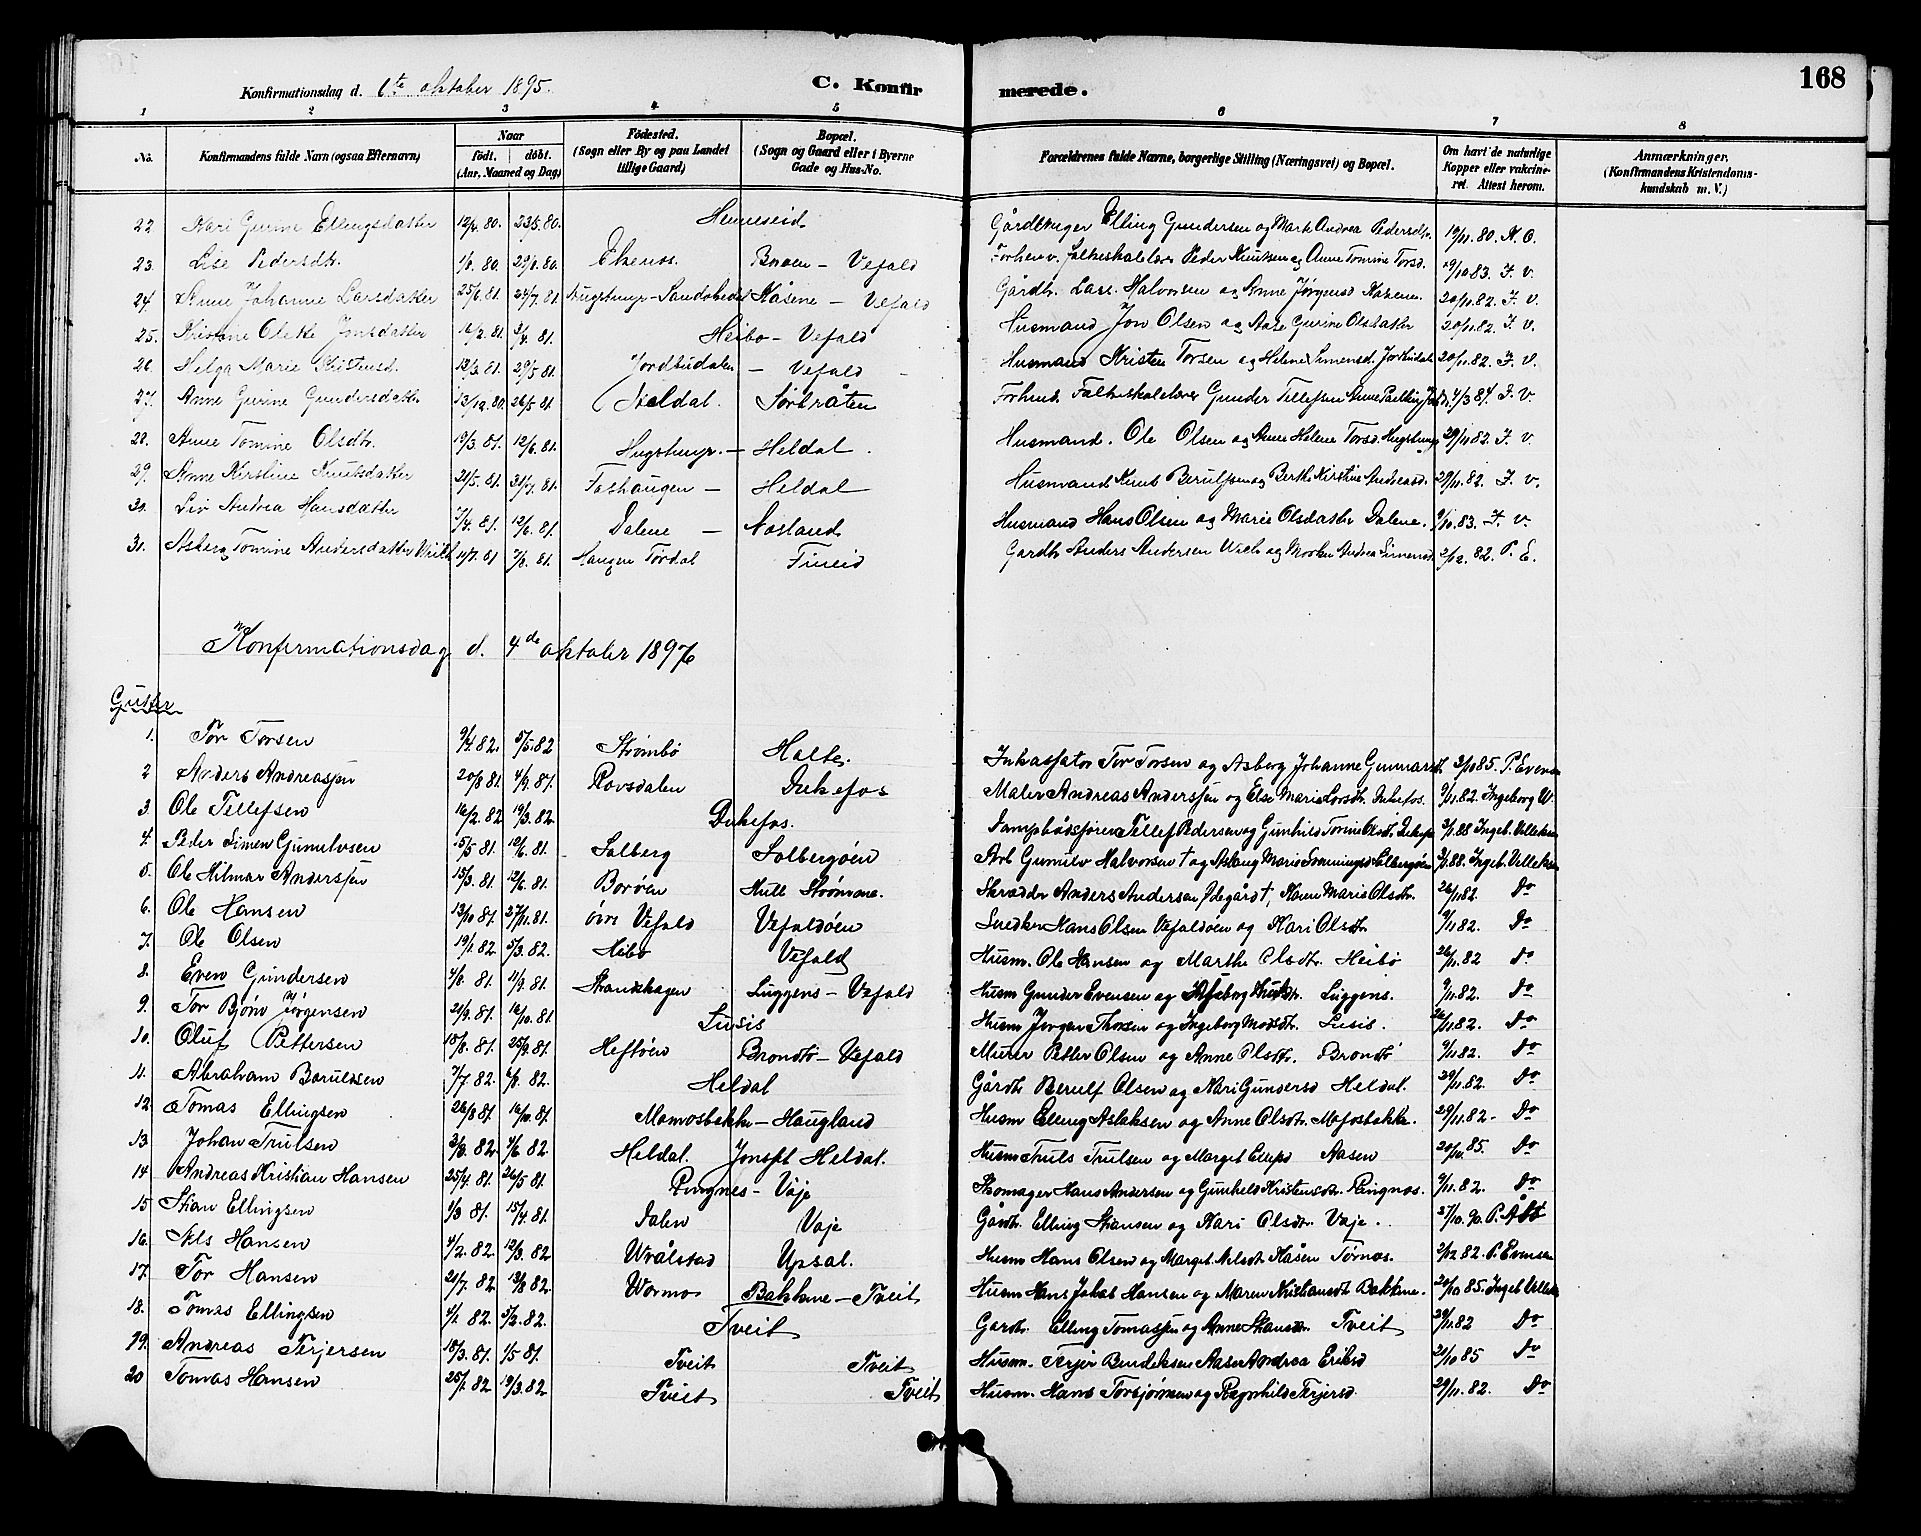 168
Konfirmationsdag d. 6te oktober 1895. C. Konfirmerede.
1 2 3 4 5 6 7 8
No. Konfirmandens fulde Navn (ogsaa Efternavn) Naar født. døbt. (Aar, Maaned og Dag) Födested. (Sogn eller By og paa Landet tillige Gaard) Bopæl. (Sogn og Gaard eller i Byerne Gade og Hus-No. Forældrenes fulde Navne, borgerlige Stilling (Næringsvei) og Bopæl. Om havt de naturlige Kopper eller vakcineret. Attest herom. Anmærkninger. (Konfirmandens Kristendomskundskab m. V.)
22 Kari Gurine Ellingsdatter 12/4. 80. 23/5. 80. Henseid Elling Gundersen og Andrea Pedersdtr. 19/11. 80. K. O.
23. Lise Pedersdtr. 1/8. 80. 29/8. 80. Eksenes. Broen - Vefald Forhenv. folkeskolelærer Peder Knutsen og Anne Tomine Torsd. 29/10 83. F. v.
24. Anne Johanne Larsdatter 25/6. 81. 24/7. 81. Kåsene - Vefald Gårdbr. Lars Halvorsen og Anne Jørgensd Kåsene. 20/11. 82. F. v.
25. Olette Jonsdatter 12/2. 81. 3/4. 81. Heibo - Vefald Husmand Jon Olsen og Aase Gurine Olsdatter 20/11. 82. F. v.
26. Helga Marie Kristensd. 12/3. 81. 29/5. 81. Jordbudalen - Vefald - Husmand Kristen Torsen og Helene Simensd. 20/11. 82. F. V.
27. Anne Gurine Gundersdatter 13/12. 80. 26/5. 81. Heldal. Sørbråten Folkeskolelærer Gunder Tellefsen 4/3 84. F. V.
28. Anne Tomine Olsdtr. 19/3. 81. 12/6. 81. Hugstmyr. - Heldal. Husmand. Ole Olsen og Anne Helene Torsd. Hugstmyr 29/11 82. F. v.
29. Anne Kirstine Knutsdatter 21/5. 81. 31/7. 81. Foshaugen - Heldal Husmand Knut Berulfsen og Berthe Kirstine Andreasd. 29/11. 82. F. v.
30. Liv Andrea Hansdatter 7/4. 81. 12/6. 81. Dalene - Husmand Hans Olsen og Marie Olsdatter Dalene. 9/10. 83. F. v.
31. Asberg Tomine Andersdatter 11/7. 81 7/8. 81. Haugen Tørdal Fineid Gardb Anders Andersen og Andrea Simensd 2/12. 82. P. E.
Konfirmationsdag d. 4de oktober 1896
Gutter
1. Tor Torsen 9/4. 82. 5/5. 82 Strømbø Halte. Inkassator Tor Torsen og Asberg Johanne Gunnarsd. 3/10 85. P. Evensen
2 Anders Andreassen 20/8 81. 4/9. 81. Rovsdalen Dukefos Maler Andreas Anderssen og Else Marie Larsdtr. Dukefos. 9/11. 82. Ingeborg W.
3. Ole Tellefsen 16/2. 82 19/3. 82. Dukefos. Dampbådsfører Tellef Pedersen og Gunhild Tomine Olsdtr. Dukefos 3/1. 88 Ingeb. Villeksen
4. Peder Simen Gunulvsen 15/5 81. 12/6. 81. Solberg Solbergøen Arb Gunulv Halvorsen † og Aslaug Marie Solbergøen 3/1. 88. Ingeb. Villeksen
5. Ole Hilmar Anderssen 15/3. 81 12/6. 81. Borøen Hull Strømene. Skrædder Anders Andersen Ødegård †, Karen Marie Olsdtr. 26/11 82. Do
6. Ole Hansen 13/10 81. 27/11. 81. øvre Vefald Vefaldøen Snedker Hans Olsen Vefaldøen og Kari Olsdtr 9/11 82. Do
7. Ole Olsen 19/1. 82 5/3. 82. Heibø Vefald Husm. Ole Hansen og Marthe Olsdtr. Heibø 26/11. 82 Do
8. Even Gundersen 4/8. 81. 11/9. 81. Strandhagen Luggens - Vefald Husm Gunder Evensen og Ingeborg Luggens. 9/11. 82. Do
9. Tor Bjørn Jørgensen 20/9. 81. 16/10. 81. Lusis Husm Jørgen Thorsen og Ingeborg Lusis. 26/11 82. Do
10. Oluf Pettersen 18/8. 81. 25/9. 81. Heftøen Brondtø - Vefald Murer Petter Olsen og Anne Olsdtr. Brondtø 9/11 82. Do
11. Abraham Berulvsen 7/7. 82. 6/8. 82. Heldal Gårdb Berulf Olsen og Kari Gundersd Heldal. 29/11. 82. Do
12. Tomas Ellingsen 26/8 81. 16/10. 81. Momosbakke - Haugland Husm Elling Aslaksen og Anne Olsdtr. 29/11. 82. Do
13. Johan Trulsen 3/3. 82. 4/6. 82. Heldal. Jonspl Heldal. Husm Truls Trulsen og Marget Ellefsd Aasen 20/10. 85. Do
14 Andreas Kristian Hansen 25/4. 81. 26/5 81. Ringnes - Vaje Skomager Hans Andersen og Gunhild Kristensdtr. Ringnes. 9/11. 82. Do
15 Stian Ellingsen 1/3 81. 15/4. 81. Dalen Vaje Gårdb. Elling Stiansen og Kari Olsdtr. Vaje. 27/10. 90. P. Åbø
16. Nils Hansen 4/2. 82. 12/3. 82 Wrålstad Upsal. Husm Hans Olsen og Marget Nilsdtr Kåsen Tørnes. 2/12 82. P. Evensen
17. Tor Hansen 20/7. 82 13/8 82. Wormo Bakkene - Tveit Husm Hans Jakob Hansen og Maren Kristiansdtr Bakkene. 20/10 85. Ingeb Villeksen
18. Tomas Ellingsen 4/1 82. 5/2. 82. Tveit Gardb. Elling Tomassen og Anne Stiansdtr. Tveit 29/11. 82 Do
19. Andreas Terjersen 18/3. 81. 1/5 81. Tveit Tveit Husm. Terjer Bendiksen Aase Andrea Eriksd 21/10 85 Do
20 Tomas Hansen 25/1. 82 19/3. 82 Tveit Tveit Husm. Hans Torbjørnsen og Ragnhild Terjersd. 29/11. 82. Do